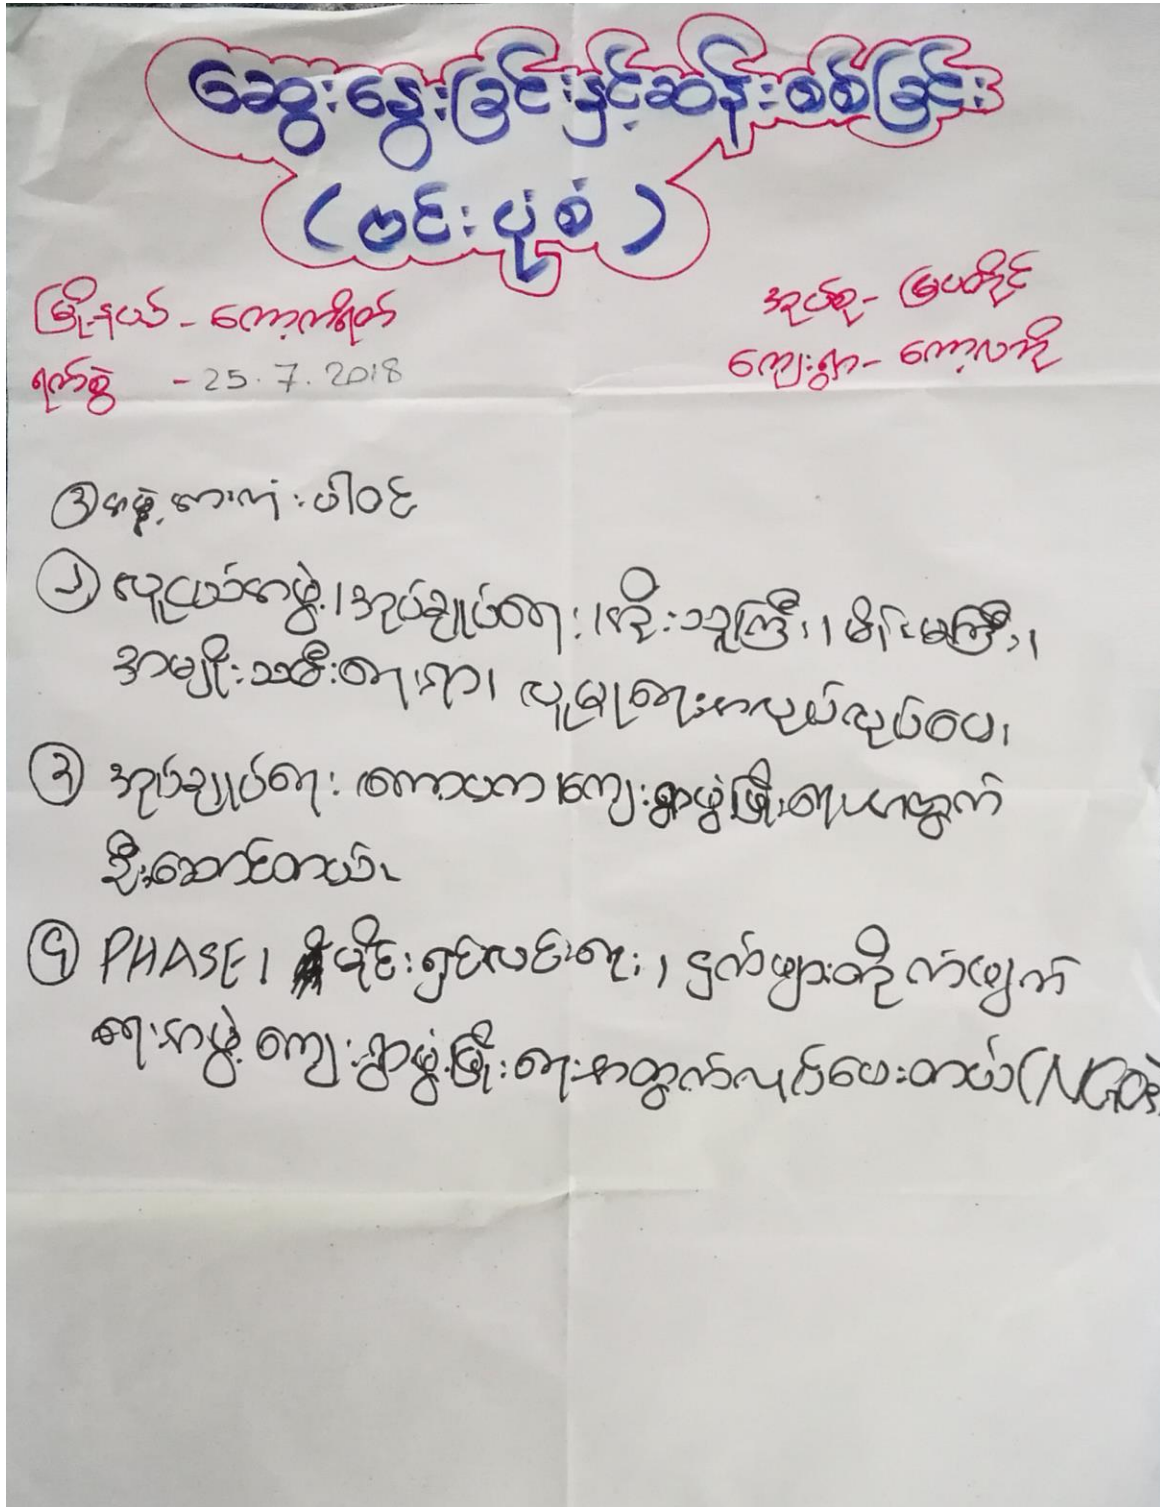 ဆွေးနွေးခြင်းနှင့်ဆန်းစစ်ခြင်း
(ဗင်းပုံစံ)
မြို့နယ် - ကော့ကရိတ်
အုပ်စု - မြပတိုင်
ရက်စွဲ - 25.7.2018
ကျေးရွာ - ကော့လဘို
အဖွဲ့အားလုံးပါဝင်
၂ လူငယ်အဖွဲ့၊ အုပ်ချုပ်ရေး၊ ကိုးသူကြီး၊ မိန်းမကြီး၊
အမျိုးသမီးရေးရာ၊ လူမှုရေးအလုပ်လုပ်ပေး၊
၃ အုပ်ချုပ်ရေး ကော်မတီ ကျေးရွာဖွံ့ဖြိုးရေးအတွက်
ဦးဆောင်တယ်၊
၄ PHASE၊ မိုင်းရှင်းလင်းရေး၊ ငှက်ဖျားတိုက်ဖျက်
ရေးအဖွဲ့ ကျေးရွာဖွံ့ဖြိုးရေးအတွက်လုပ်ပေးတယ် (NGO